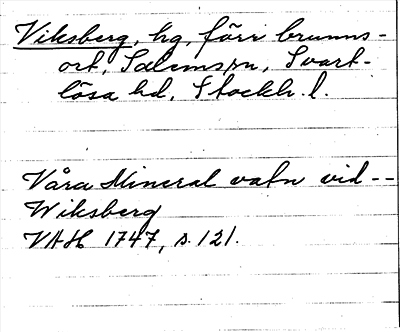 Viksberg, hg, förr brunns-
ort, Salems sn, Svart-
lösa hd, Stockh. l.
Våra Mineral vatn vid --
Wiksberg
VAH 1747, s. 121.